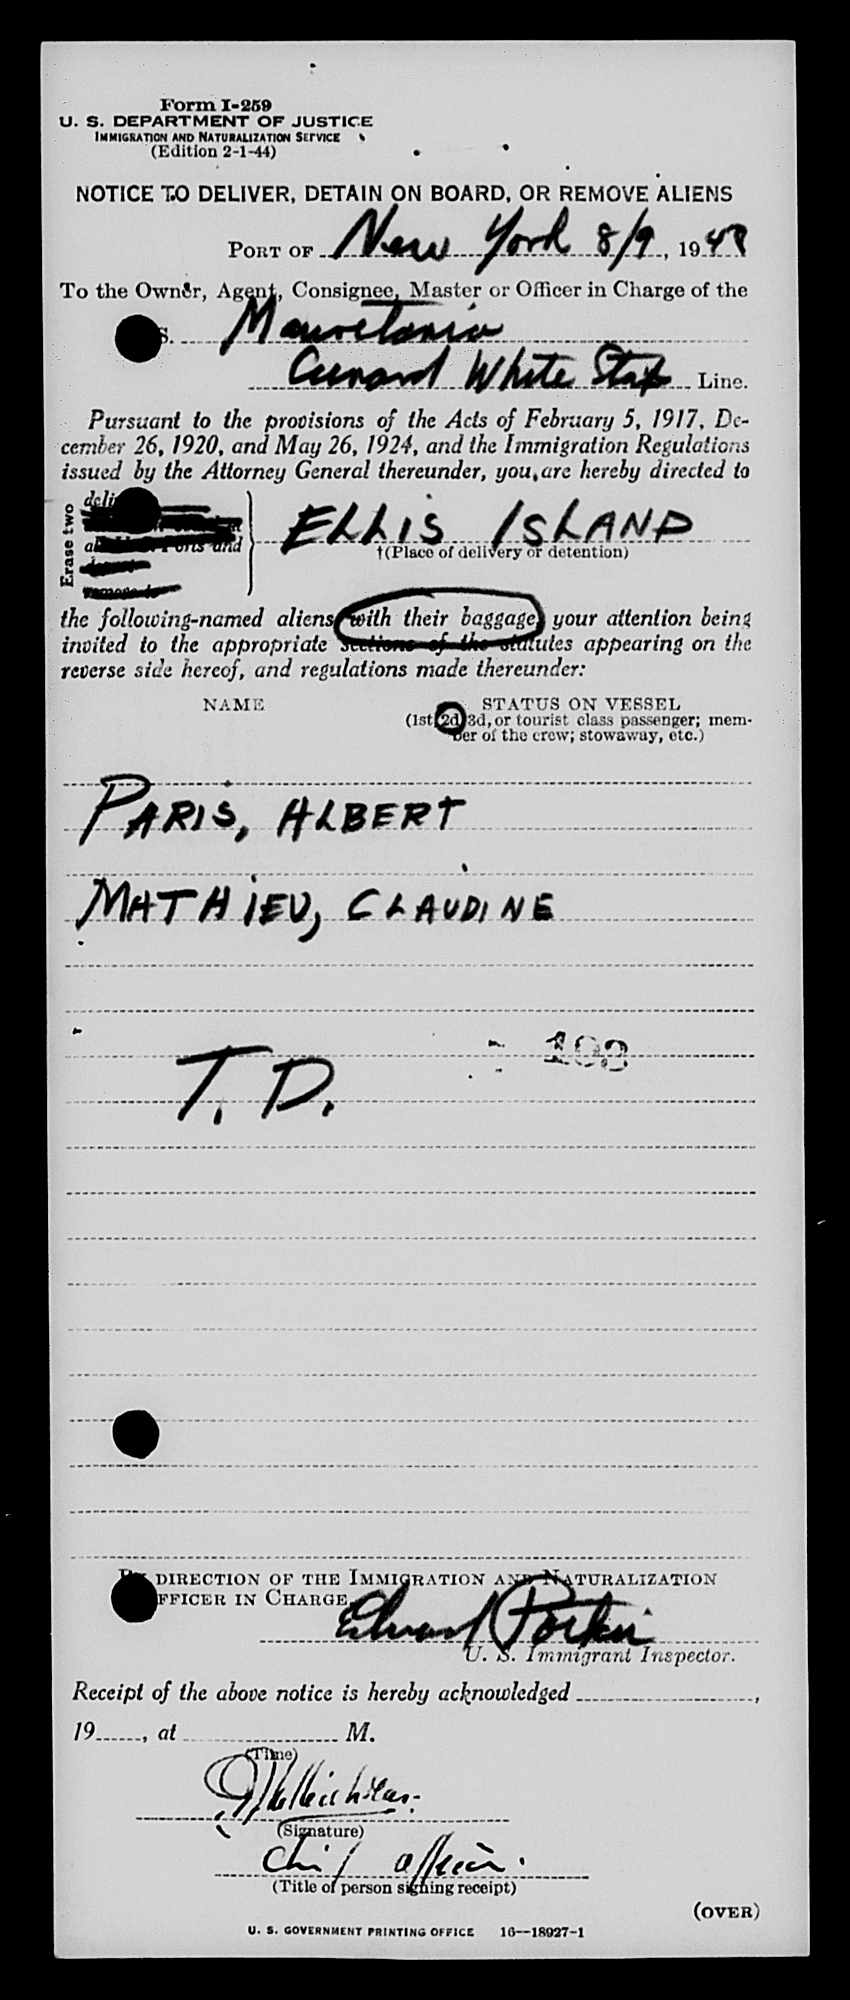 Form I-259
U. S. DEPARTMENT OF JUSTICE
IMMIGRATION AND NATURALIZATION SERVICE
(Edition 2-1-44)
NOTICE TO DELIVER, DETAIN ON BOARD, OR REMOVE ALIENS
PORT OF New York 8/9, 1948
To the Owner, Agent, Consignee, Master or Officer in Charge of the
S. Mauretania
Cunard White Star Line.
Pursuant to the provisions of the Acts of February 5, 1917, De-
cember 26, 1920, and May 26, 1924, and the Immigration Regulations
issued by the Attorney General thereunder, you are hereby directed to
Erase two
ELLIS ISLAND
†(Place of delivery or detention)
the following-named aliens with their baggage, your attention being
invited to the appropriate sections of the statutes appearing on the
reverse side hereof, and regulations made thereunder:
NAME STATUS ON VESSEL
(1st, 2d, 3d, or tourist class passenger; mem-
ber of the crew; stowaway, etc.)
PARIS, ALBERT
MATHIEU, CLAUDINE
T. D.
BY DIRECTION OF THE IMMIGRATION AND NATURALIZATION
OFFICER IN CHARGE,
Edward
U. S. Immigrant Inspector.
Receipt of the above notice is hereby acknowledged ,
19 , at M.
(Time)
(Signature)
Chief Officer.
(Title of person signing receipt)
(OVER)
U. S. GOVERNMENT PRINTING OFFICE 16—18927-1